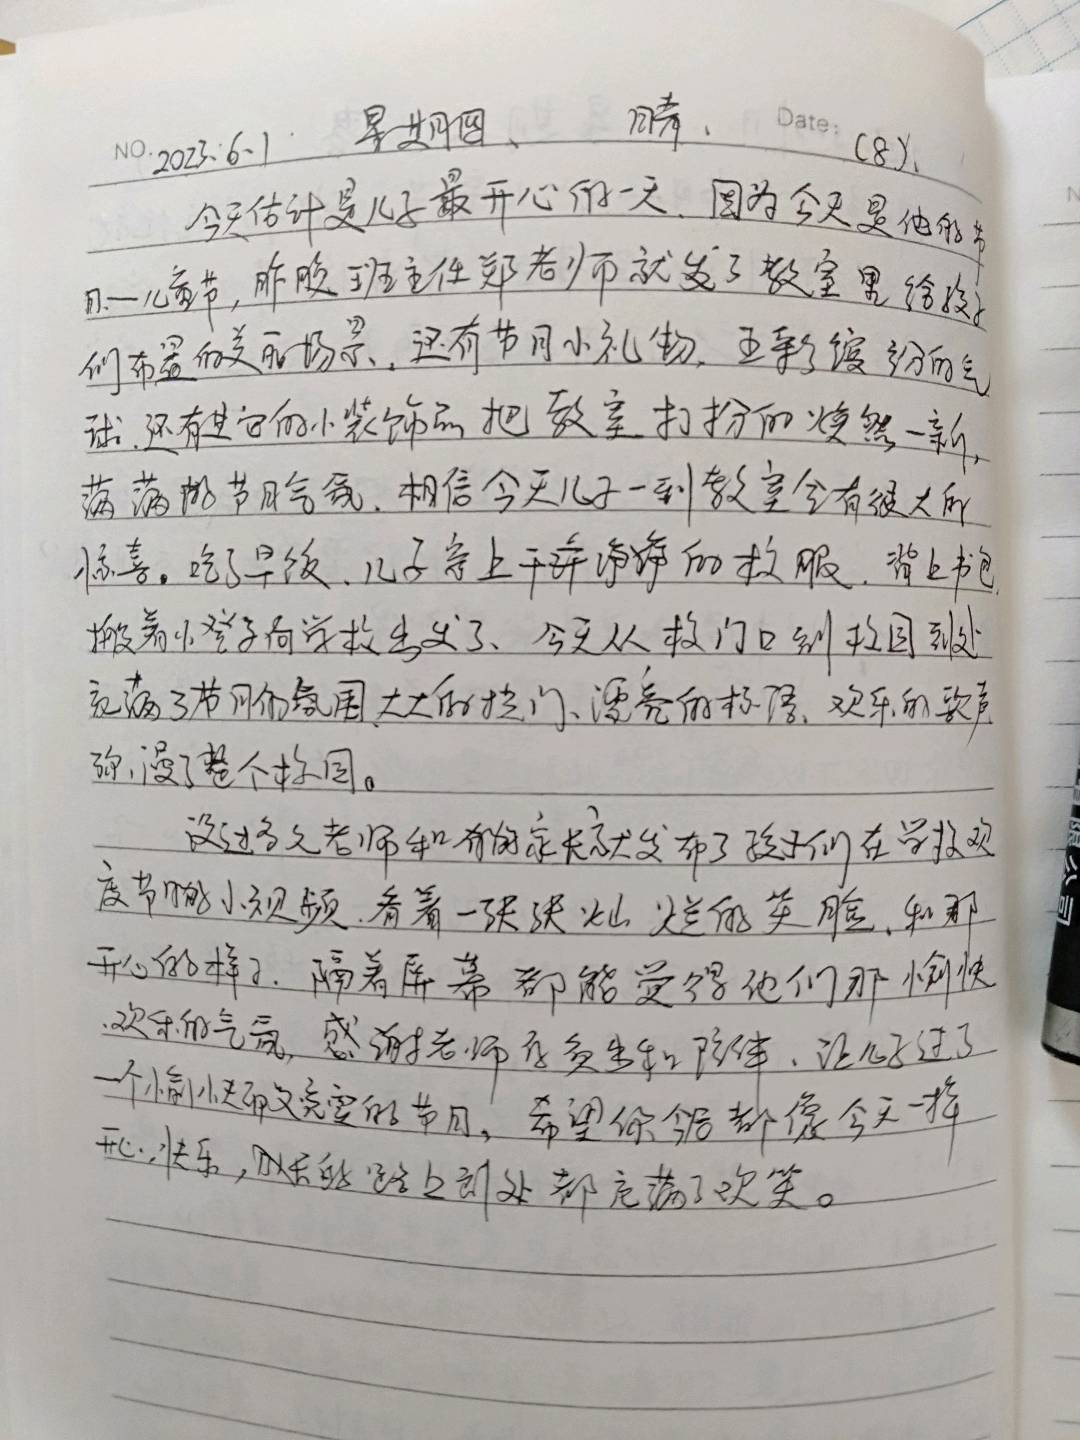 NO. 2023.6.1 星期四、 晴、 Date: (8)、
今天估计是儿子最开心的一天、因为今天是他的节
日—儿童节,昨晚班主任郑老师就发了教室里给孩子
们布置的美丽场景、还有节日小礼物、五彩缤纷的气
球、还有其它的小装饰品把教室打扮的焕然一新,
满满的节日气氛、相信今天儿子一到教室会有很大的
惊喜。吃了早饭、儿子穿上干干净净的校服、背上书包
搬着小凳子向学校出发了、今天从校门口到校园到处
充满了节日的氛围、大大的拱门、漂亮的标语、欢乐的歌声
弥漫了整个校园。
没过多久老师和有的家长就发布了孩子们在学校欢
度节日的小视频、看着一张张灿烂的笑脸、和那
开心的样子、隔着屏幕都能觉得他们那愉快
欢乐的气氛,感谢老师和陪伴、让儿子过了
一个愉快而又完整的节日。希望你今后都像今天一样
开心、快乐,成长的路上到处都充满了欢笑。
限公司